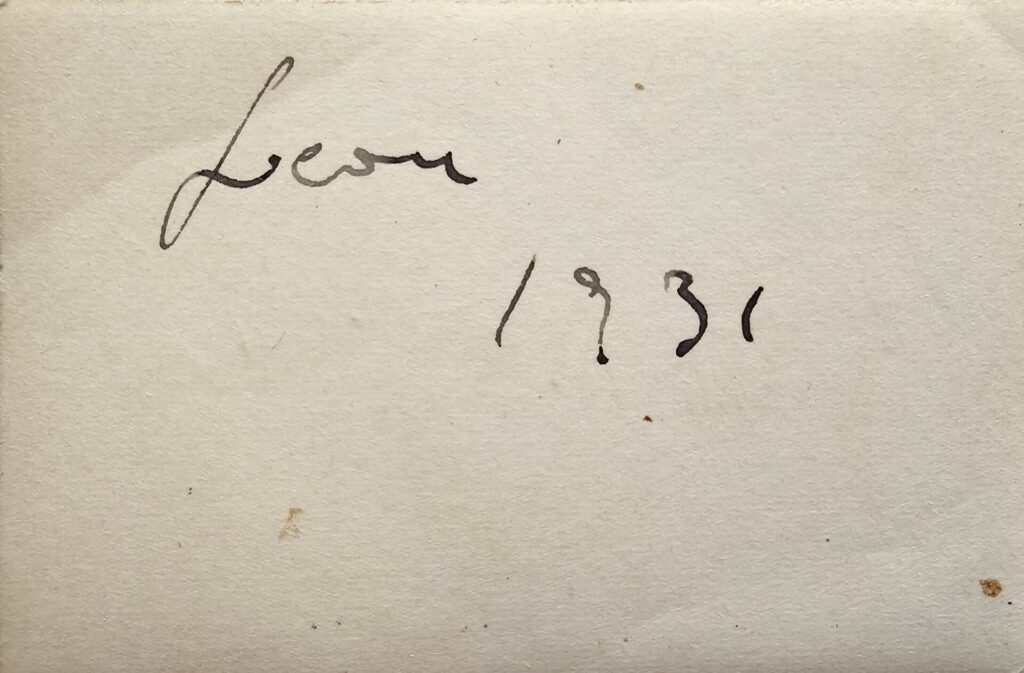 Leon
1931